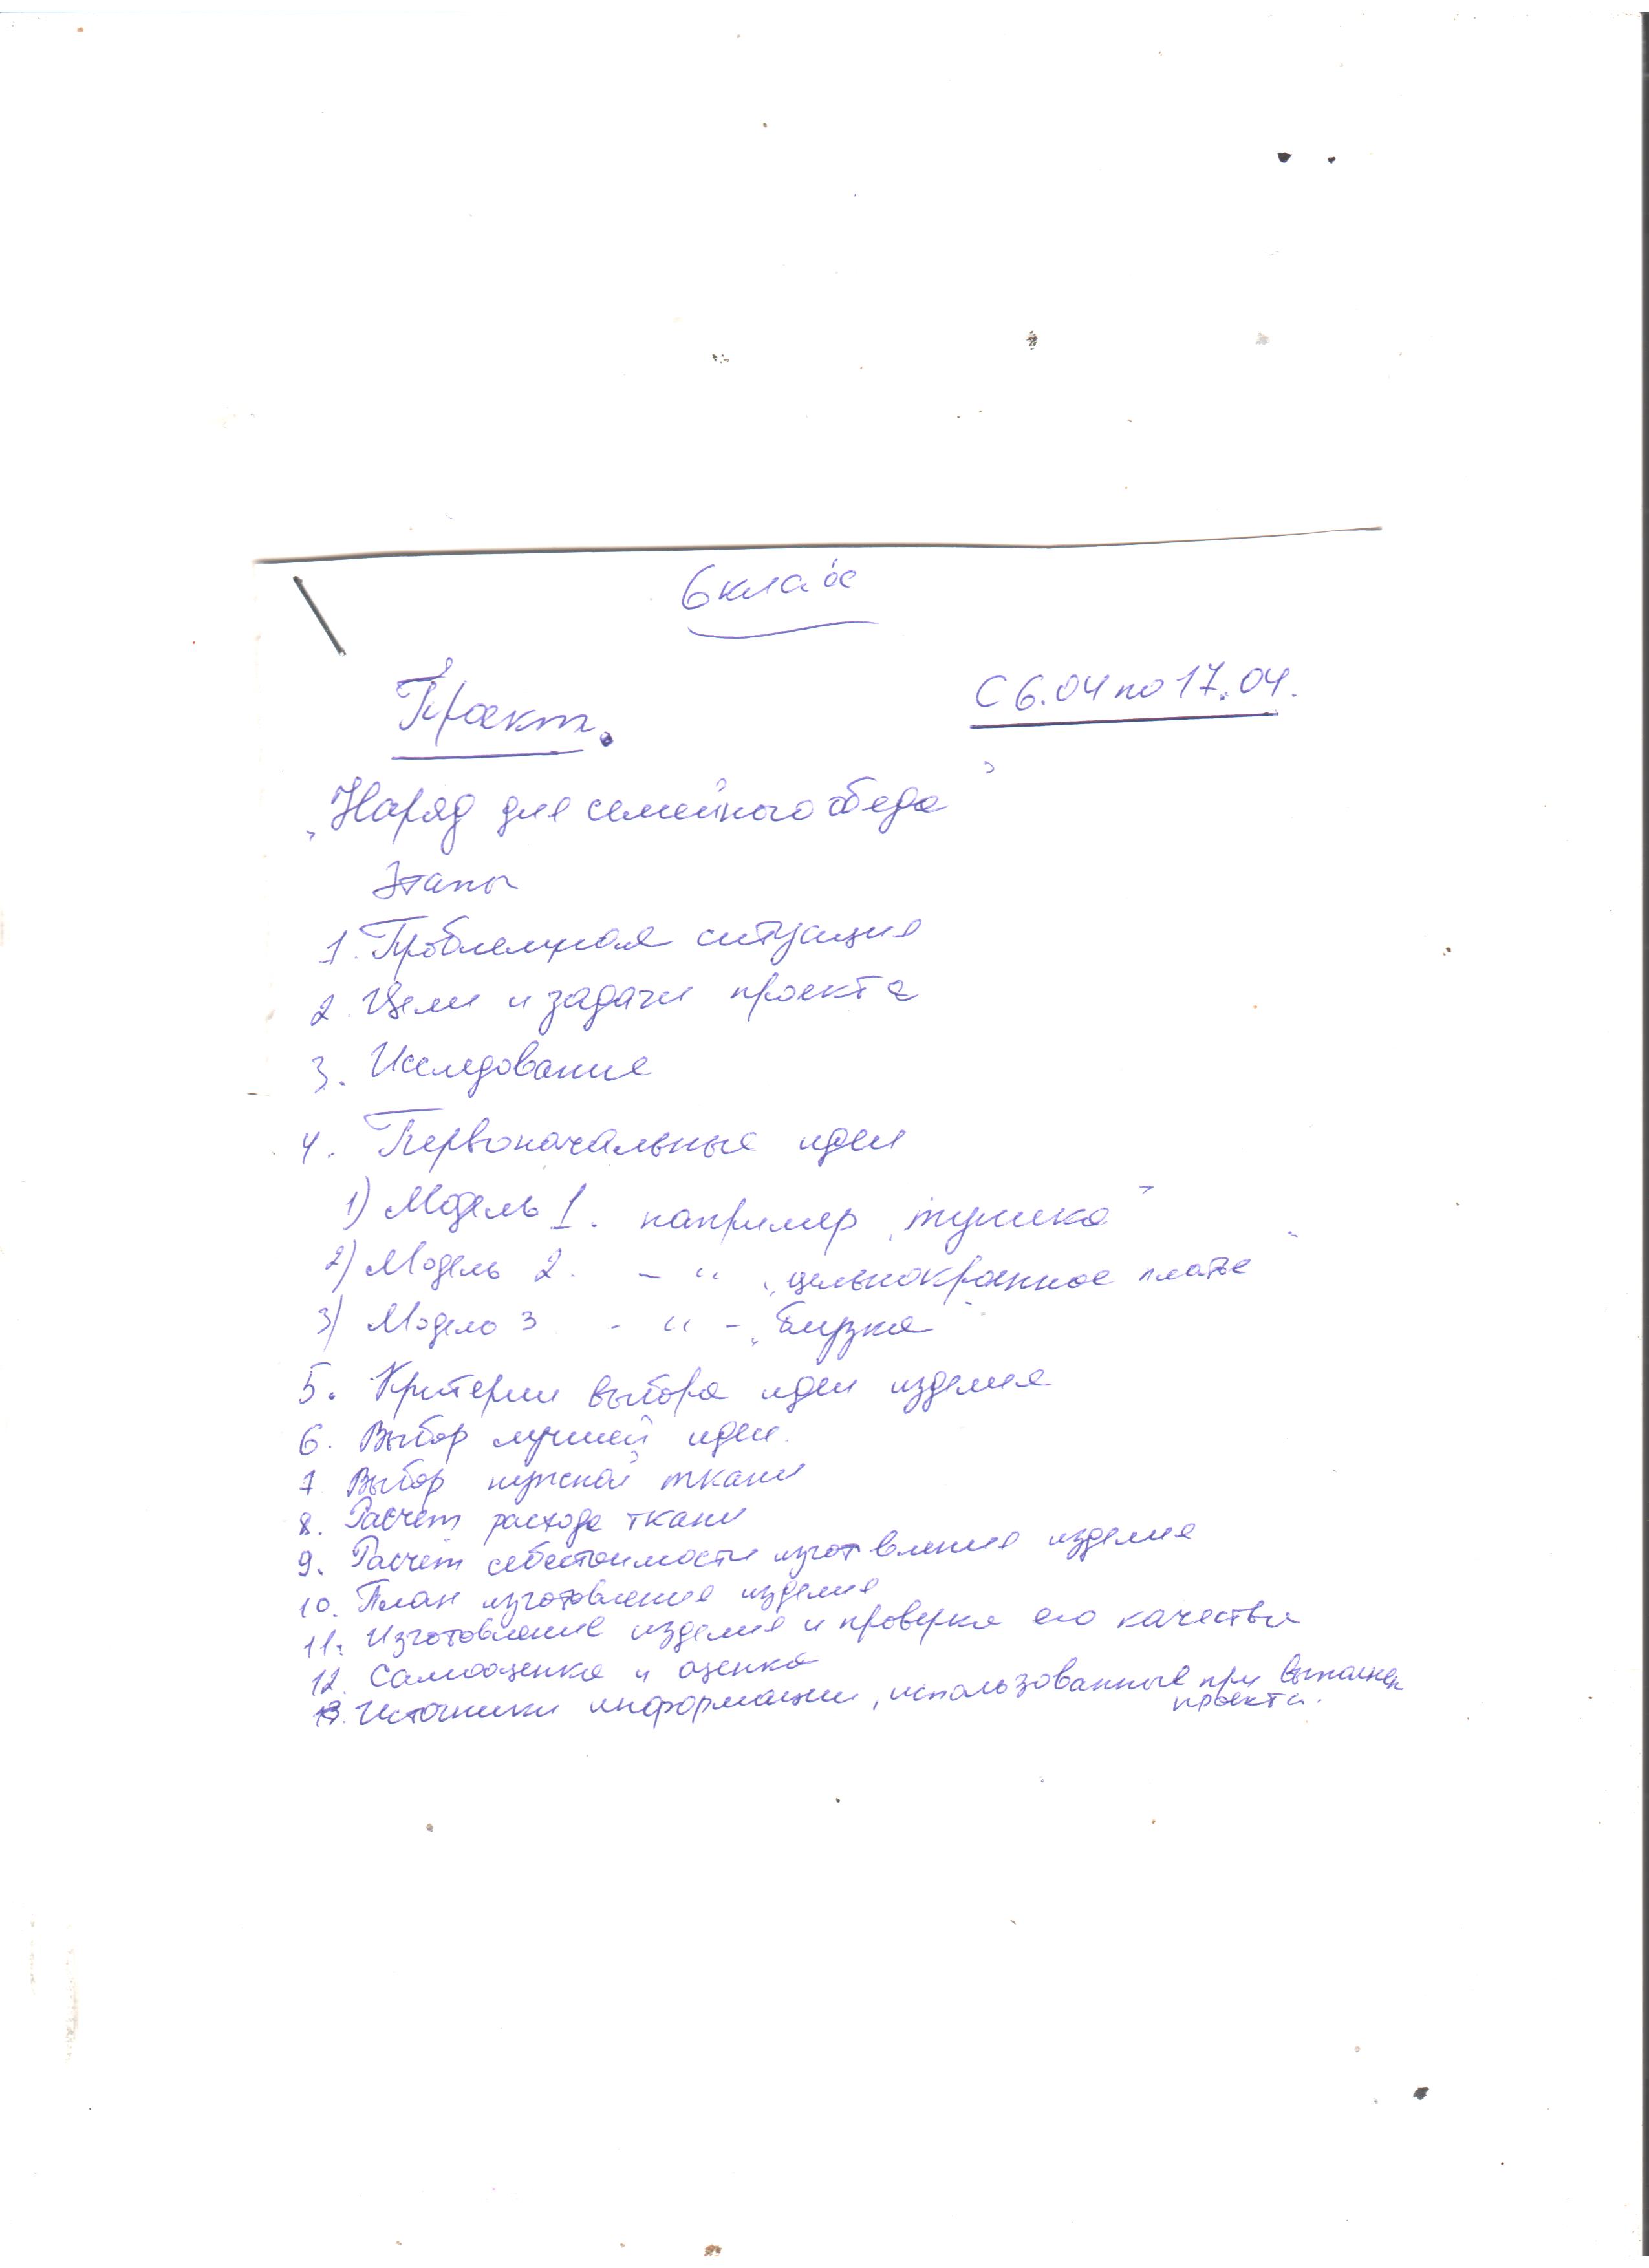 6 класс
Проект.
С 6.04 по 17.04.
„Наряд для семейного обеда"
Этапы
1. Проблемная ситуация
2. Цели и задачи проекта
3. Исследование
4. Первоначальные идеи
1) Модель 1. например „туника"
2) Модель 2. – " „цельнокроенное платье"
3) Модель 3 - " - „Блузка"
5. Критерии выбора идеи изделия
6. Выбор лучшей идеи.
7. Выбор нужной ткани
8. Расчёт расхода ткани
9. Расчёт себестоимости изготовления изделия
10. План изготовления изделия
11. Изготовление изделия и проверка его качества
12. Самооценка и оценка
13. Источники информации, использованные при выполнен
проекта.